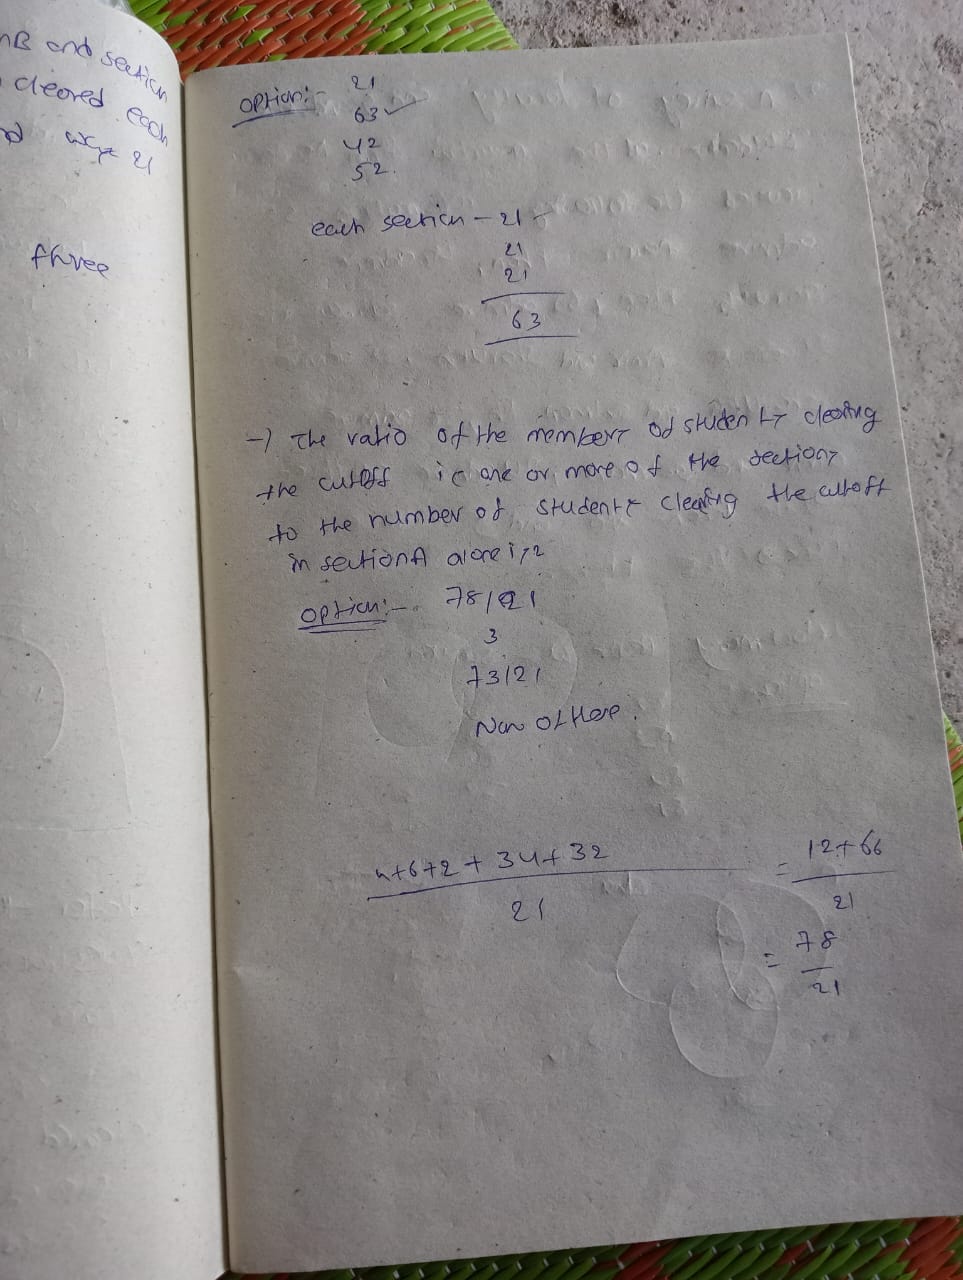 nB and section
cleored each
nd way 21
three
option:- 21
63 ✓
42
52.
each section - 21
21
21
63
→ The ratio of the members od student clearing
the cutoff is one or more of the sections
to the number of students clearing the cutoff
in section A alone is 2
option:- 78/21
3
73/21
Non of these.
4+6+2 + 34+32 = 12+66
21 21
= 78
21